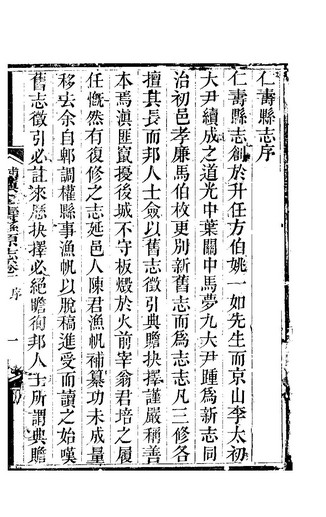 仁壽縣志序
仁壽縣志創於升任方伯姚一如先生而京山李太初
大尹續成之道光中葉關中馬夢九大尹踵為新志同
治初邑孝廉馬伯枚更別新舊志而為志志凡三修各
擅其長而邦人士僉以舊志徵引典贍抉擇謹嚴稱善
本焉滇匪竄擾後城不守板燬於火前宰翁君培之履
任慨然有復修之志延邑人陳君漁帆補纂功未成量
移去余自郫調權縣事漁帆以脫稿進受而讀之始嘆
舊志徵引必註來歷抉擇必絕瞻徇邦人士所謂典贍
序
一